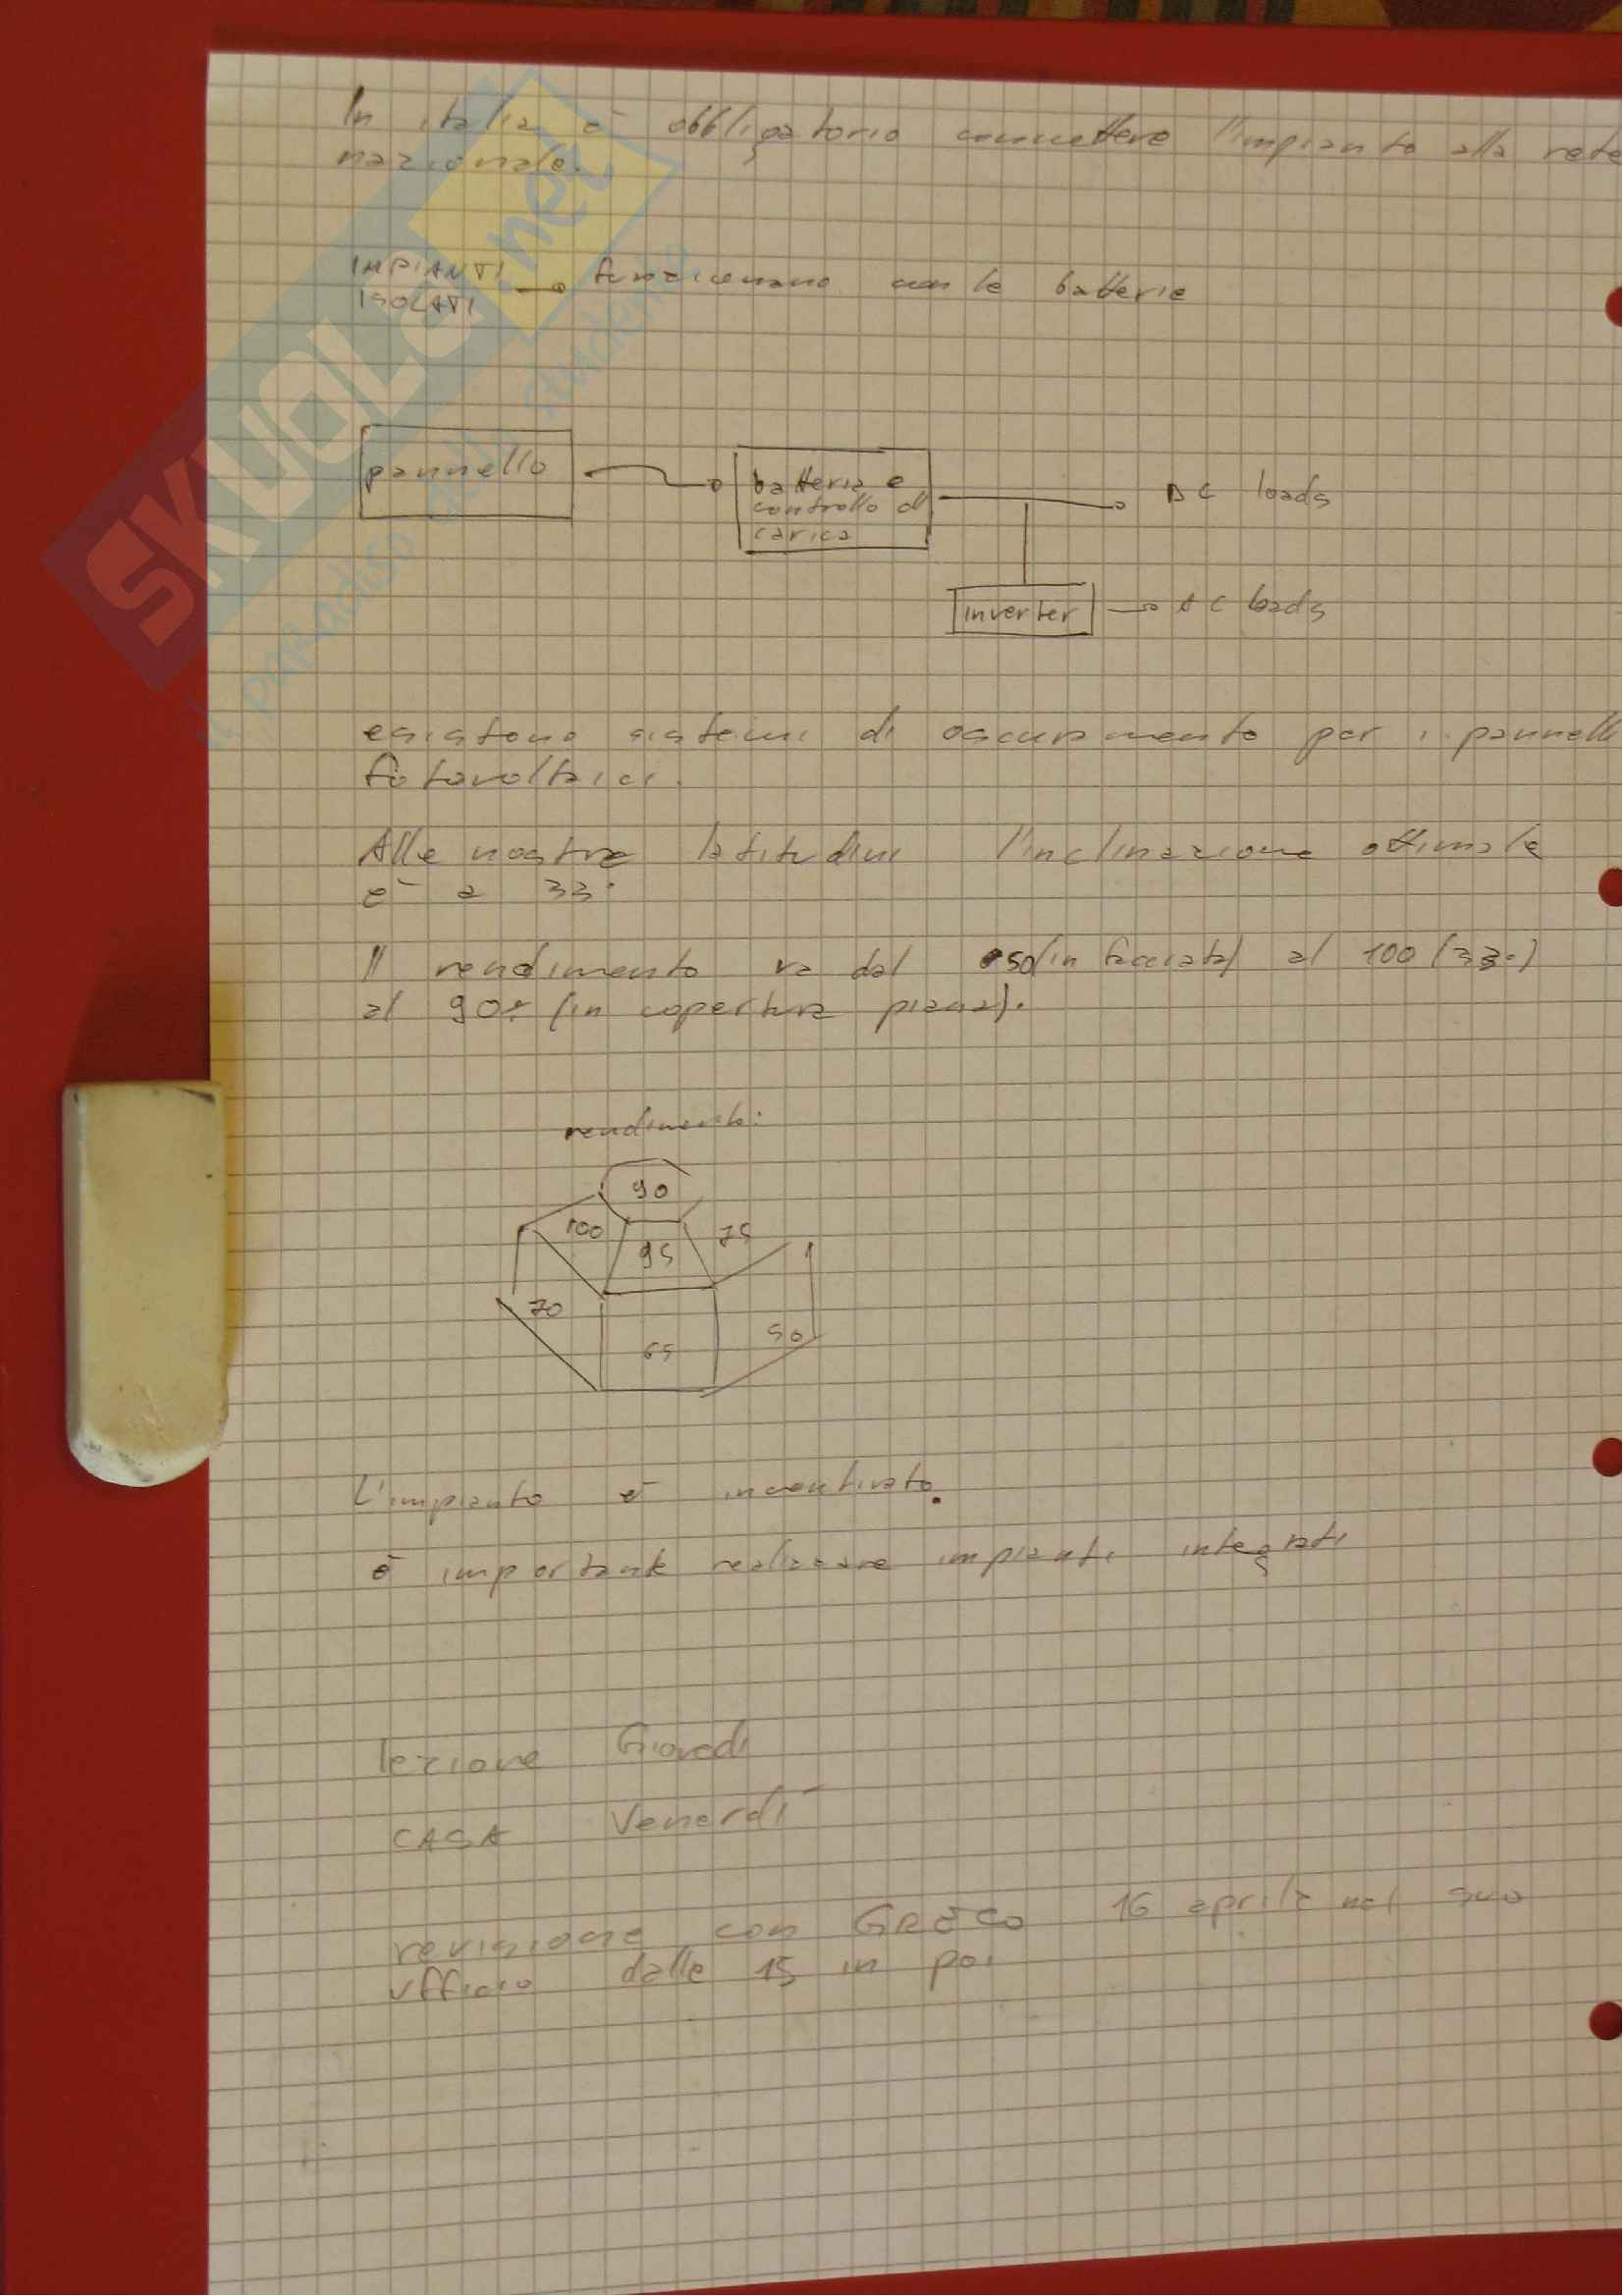 In italia è obbligatorio connettere l'impianto alla rete
nazionale.
IMPIANTI
ISOLATI
funzionano con le batterie
pannello
batteria e
controllo di
carica
DC loads
inverter
AC loads
esistono sistemi di oscuramento per i pannelli
fotovoltaici.
Alle nostre latitudini l'inclinazione ottimale
è a 33°
Il rendimento va dal 50 (in facciata) al 100 (33°)
al 90% (in copertura piana).
rendimento:
90
100
95
75
70
65
50
L'impianto è incentivato.
è importante realizzare impianti integrati
lezione Giovedì
CASA Venerdì
revisione con GRECO 16 aprile nel suo
ufficio dalle 15 in poi
SKUOLA.net
il paradiso dello studente